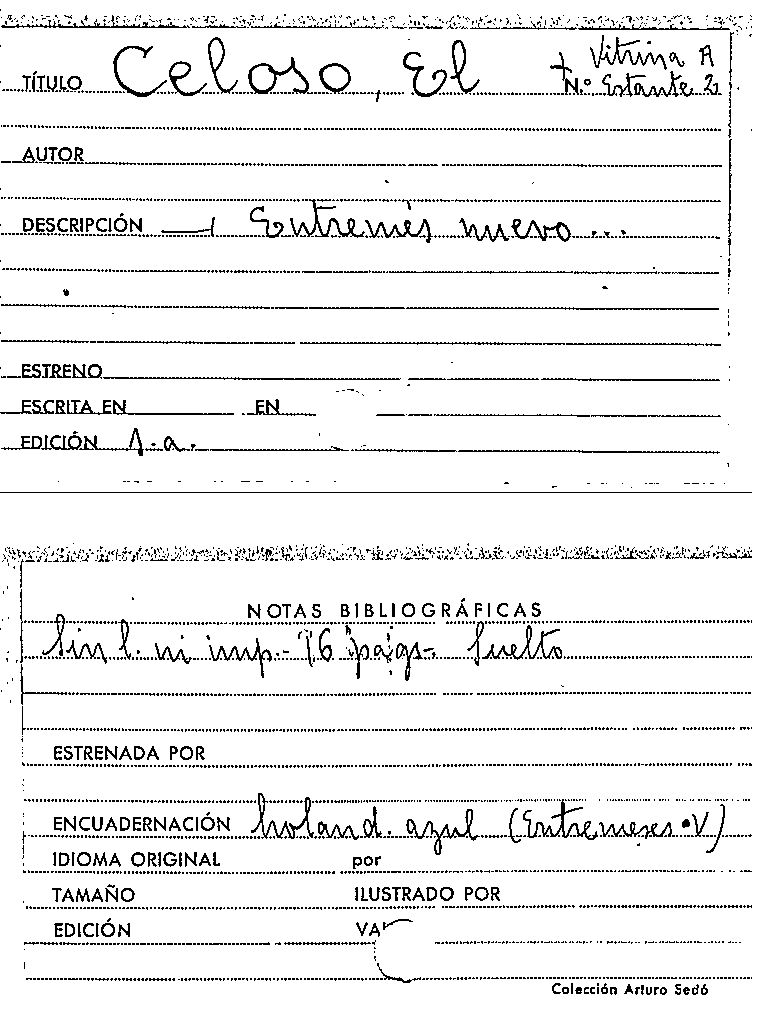 Vitrina A
TÍTULO Celoso, El N.º Estante 2
AUTOR
DESCRIPCIÓN Entremés nuevo...
ESTRENO
ESCRITA EN EN
EDICIÓN s.a.
NOTAS BIBLIOGRÁFICAS
Sin l. ni imp.- 16 págs- Suelto
ESTRENADA POR
ENCUADERNACIÓN holand. azul (Entremeses V)
IDIOMA ORIGINAL por
TAMAÑO ILUSTRADO POR
EDICIÓN
Colección Arturo Sedó